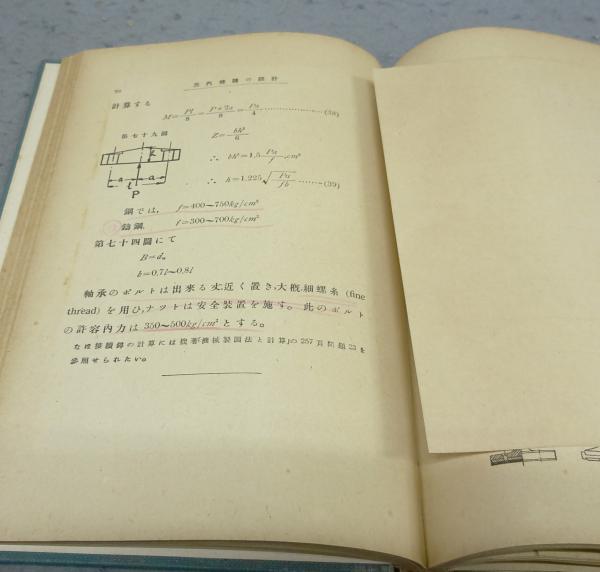 機關の設計
計算する
M = Pl/8 = P×2a/8 = Pa/4 ……………(38)
第七十九圖
Z = bh²/6
∴ bh² = 1.5 Pa/f cm³
∴ h = 1.225 √(Pa/fb) ………(39)
a a
l
P
鋼では, f=400~750kg/cm²
鑄鋼, f=300~700kg/cm²
第七十四圖にて
B=d
b=0.7l~0.8l
軸承のボルトは出來る丈近く置き,大槪細螺糸 (fine
thread) を用ひ,ナットは安全裝置を施す。此のボルト
の許容內力は 350~500kg/cm² とする。
なほ接續錚の計算には拙著「機械製圖法と計算」の257頁問題23を
參照せられたい。